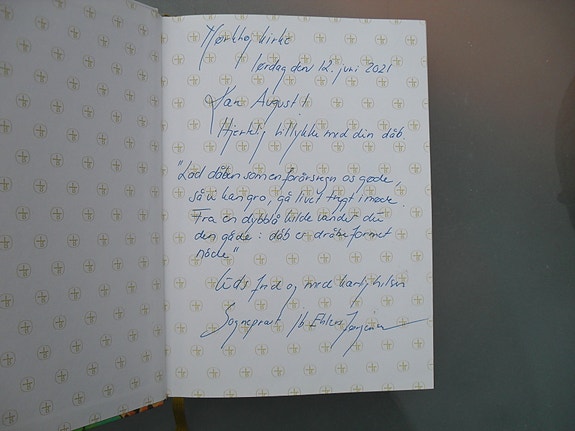 Mørkhøj kirke
lørdag den 12. juni 2021
Kære August!
Hjertelig tillykke med din dåb.
"Lad dåben som en forårsregn os gøde,
så vi kan gro, gå livet trygt i møde.
Fra en dybblå kilde vander du
den gåde: dåb er dråbeformet
nåde"
Guds fred og med kærlig hilsen
Sognepræst Ib Ehlers Jørgensen